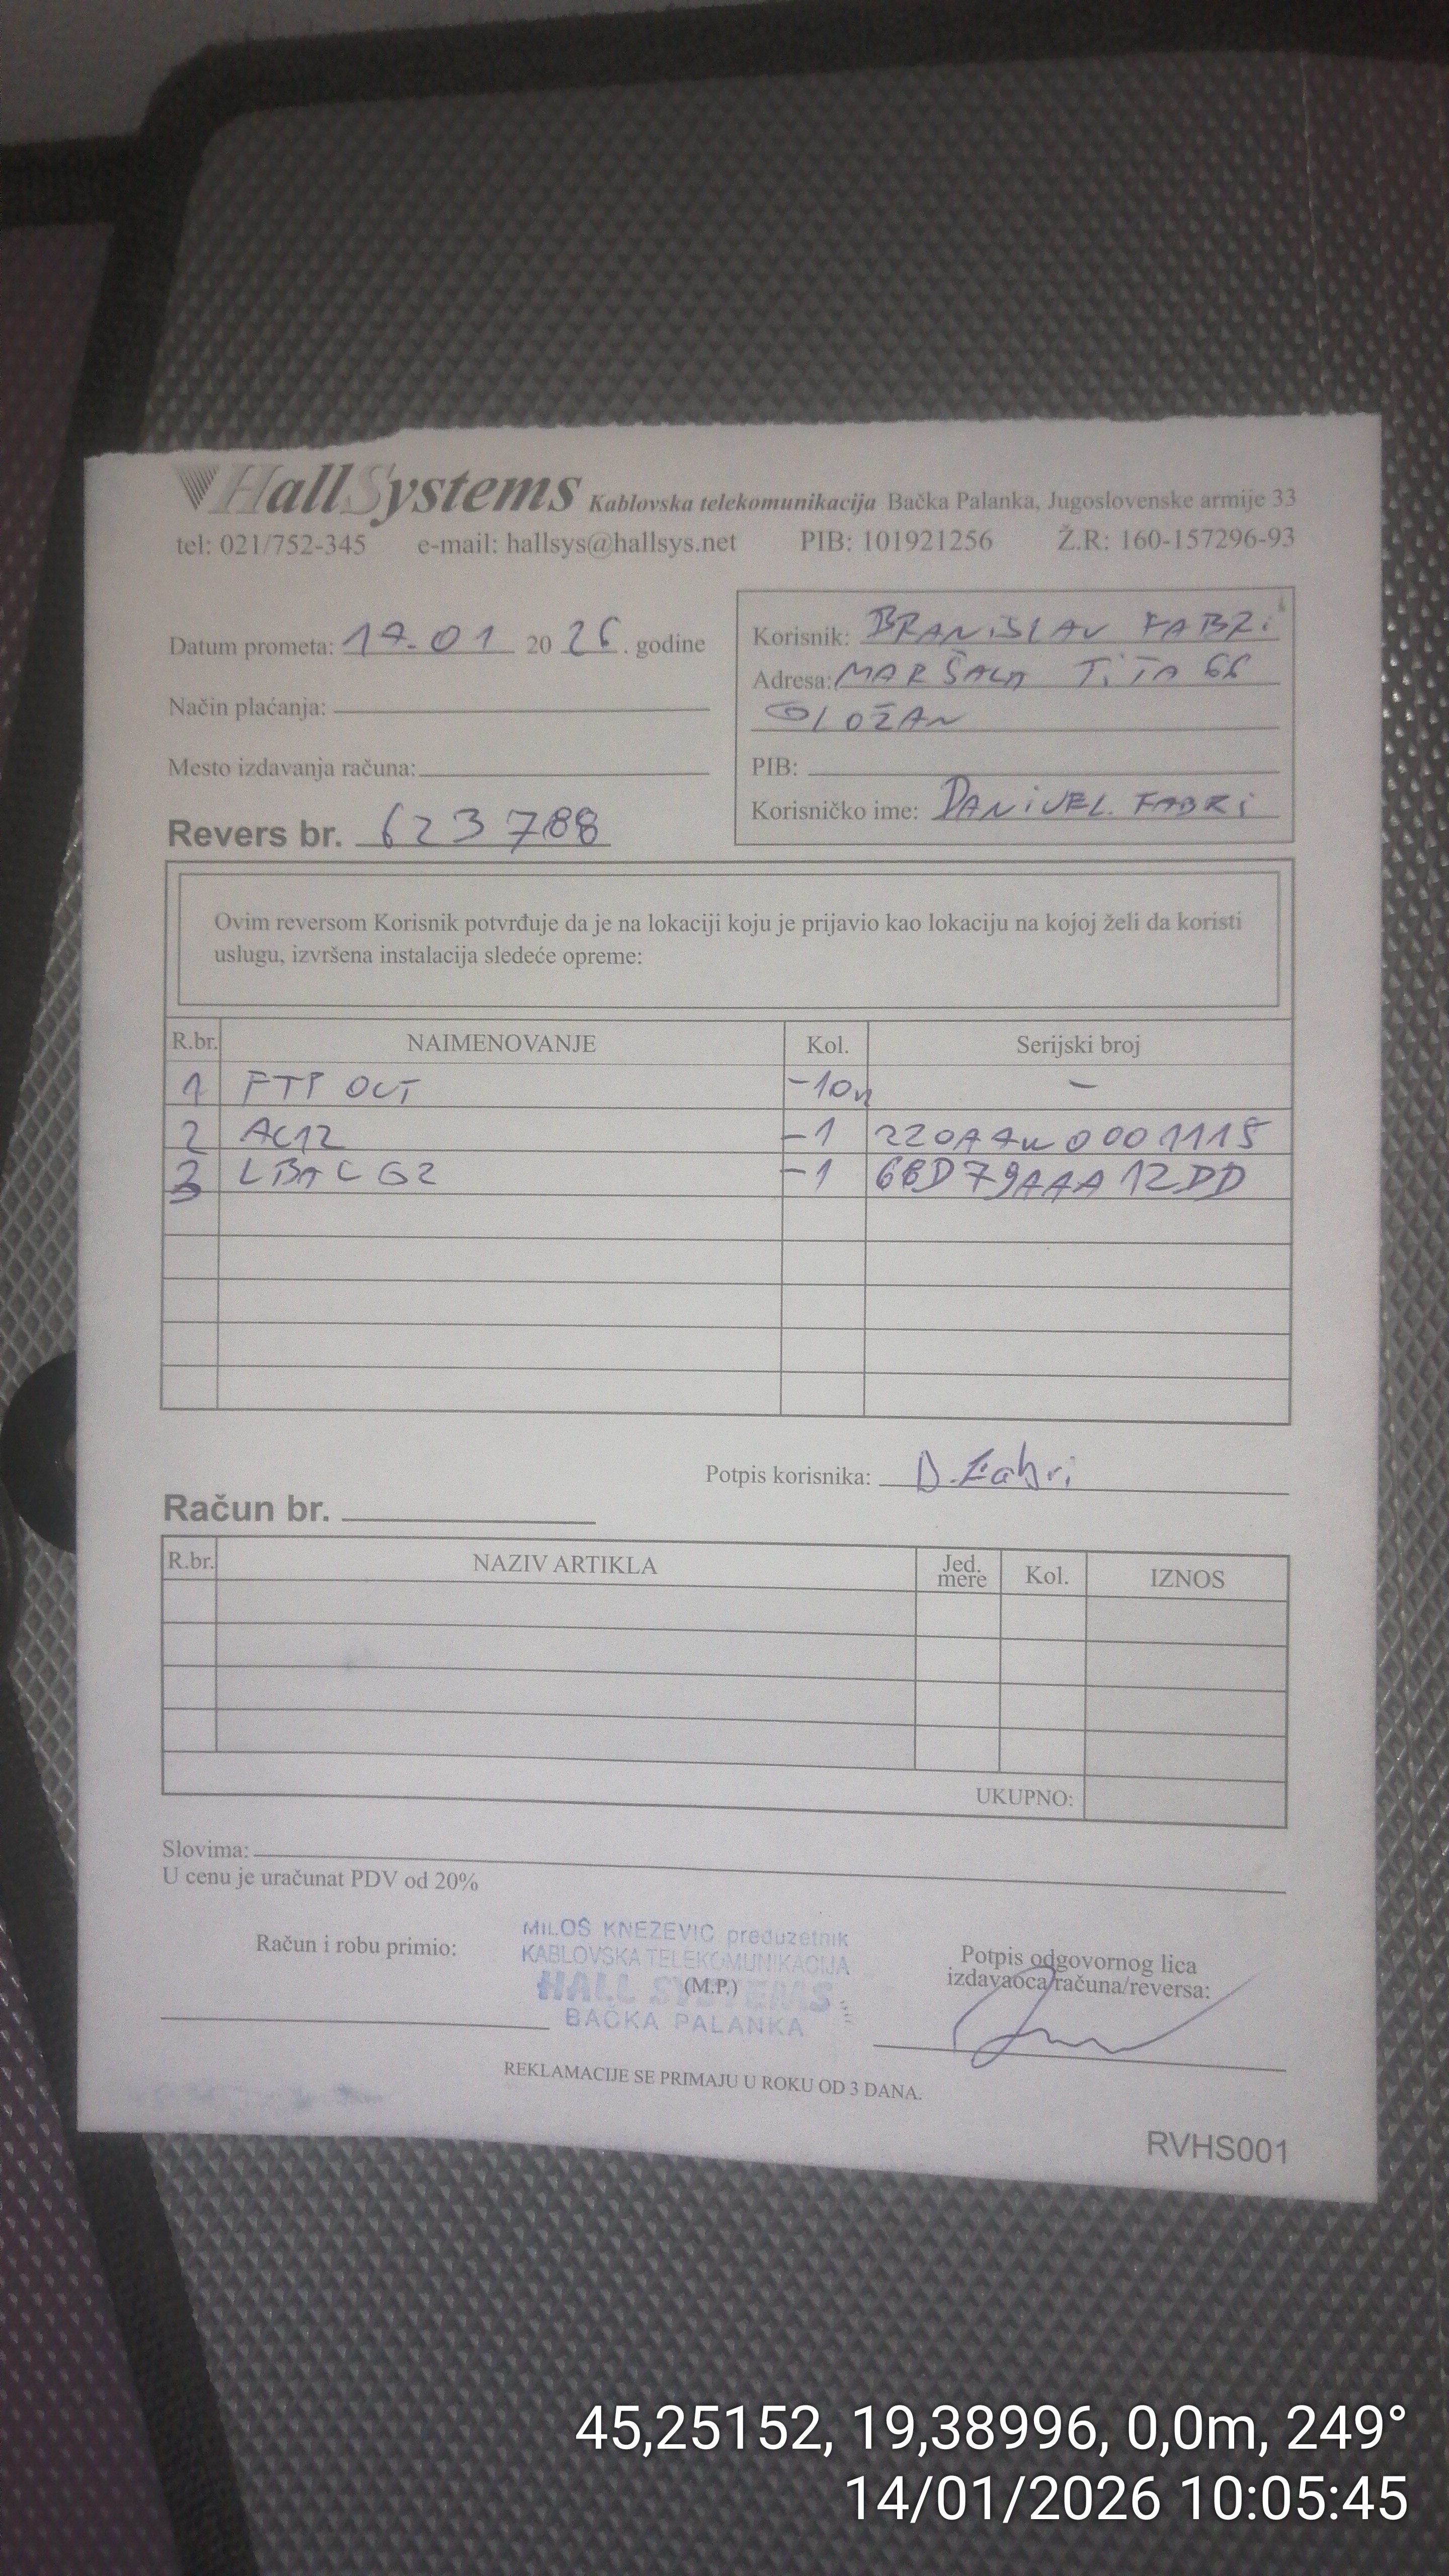 HallSystems Kablovska telekomunikacija Bačka Palanka, Jugoslovenske armije 33
tel: 021/752-345 e-mail: hallsys@hallsys.net PIB: 101921256 Ž.R: 160-157296-93
Datum prometa: 14.01 2026. godine
Način plaćanja:
Mesto izdavanja računa:
Revers br. 623788
Korisnik: BRANiSLAV FABRi
Adresa: MARŠALA TiTA 66
GLOŽAN
PIB:
Korisničko ime: DANiJEL.FABRi
Ovim reversom Korisnik potvrđuje da je na lokaciji koju je prijavio kao lokaciju na kojoj želi da koristi
uslugu, izvršena instalacija sledeće opreme:
R.br. NAIMENOVANJE Kol. Serijski broj
1 FTP OUT -10m -
2 AC12 -1 220AA4W0001115
3 LBAC G2 -1 68D79AAA12DD
Potpis korisnika: D. Fabri
Račun br.
R.br. NAZIV ARTIKLA Jed. mere Kol. IZNOS
UKUPNO:
Slovima:
U cenu je uračunat PDV od 20%
Račun i robu primio:
MILOŠ KNEZEVIC preduzetnik
KABLOVSKA TELEKOMUNIKACIJA
HALL SYSTEMS
(M.P.)
BAČKA PALANKA
Potpis odgovornog lica
izdavaoca računa/reversa:
REKLAMACIJE SE PRIMAJU U ROKU OD 3 DANA.
RVHS001
45,25152, 19,38996, 0,0m, 249°
14/01/2026 10:05:45